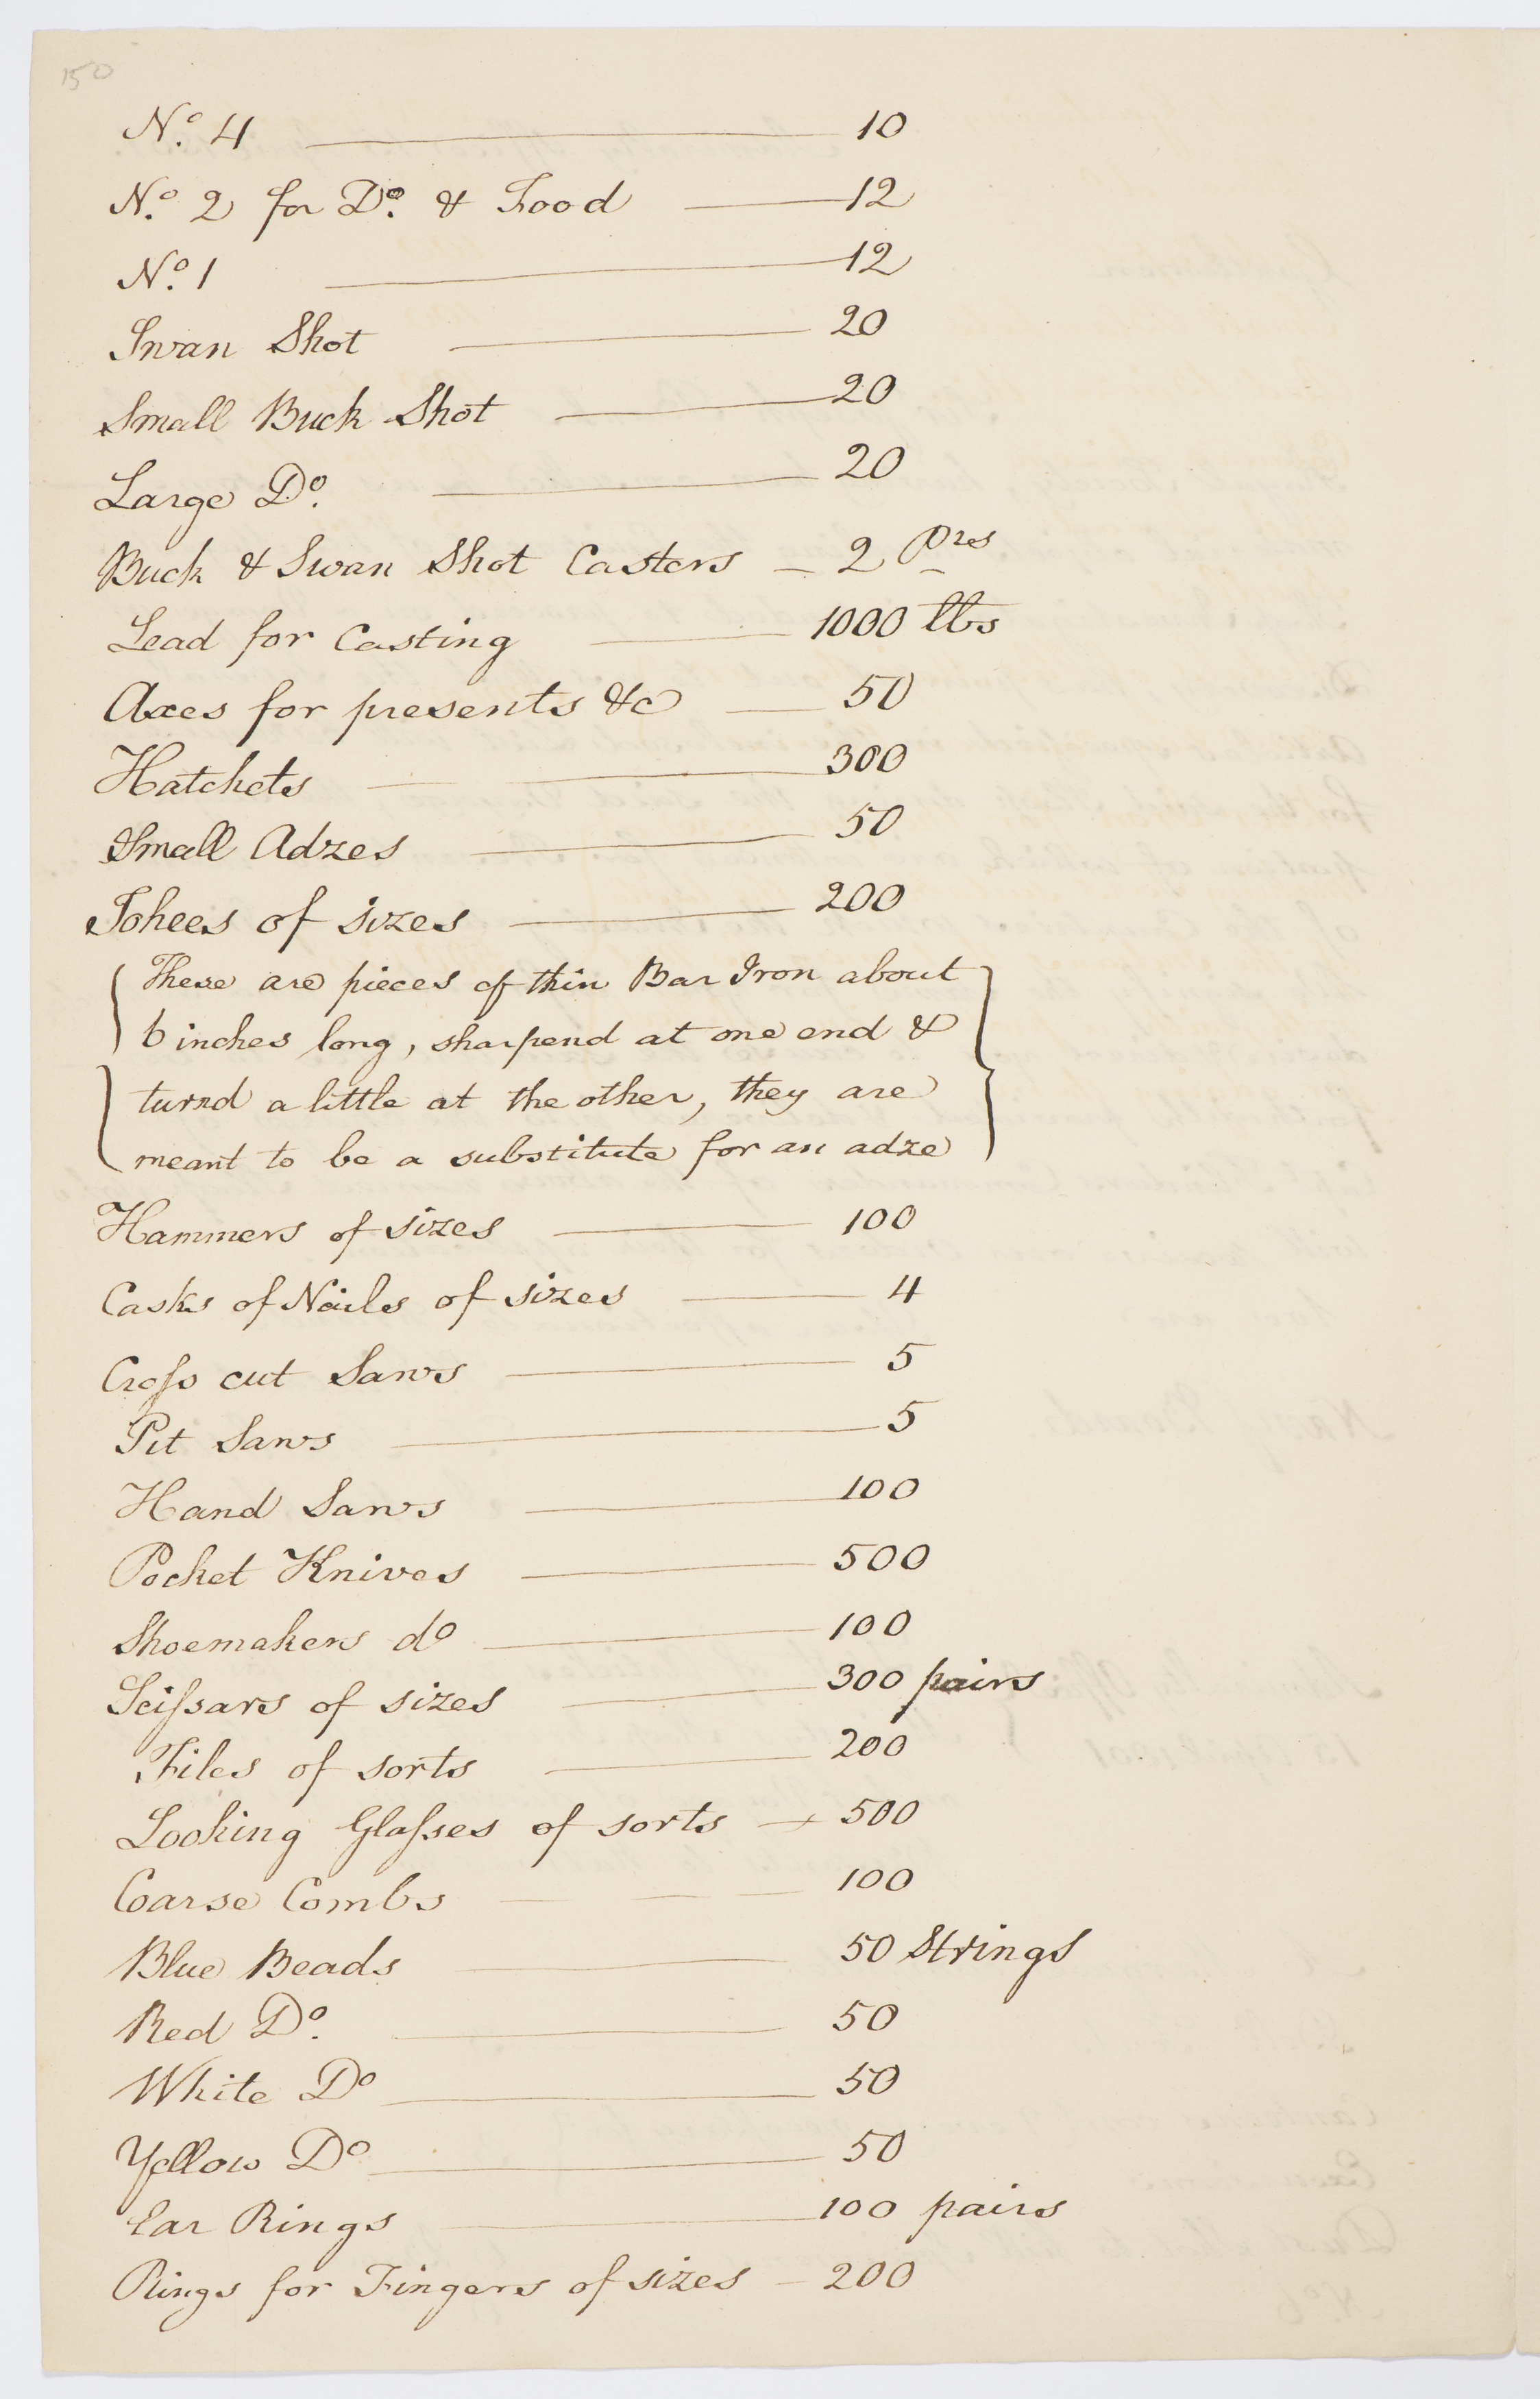 150
No. 4 — 10
No. 2 for Do. & Food — 12
No. 1 — 12
Swan Shot — 20
Small Buck Shot — 20
Large Do. — 20
Buck & Swan Shot Casters — 2 Prs
Lead for Casting — 1000 lbs
Axes for presents &c — 50
Hatchets — 300
Small Adzes — 50
Tohees of sizes — 200
These are pieces of thin Bar Iron about
6 inches long, sharpend at one end &
turnd a little at the other, they are
meant to be a substitute for an adze
Hammers of sizes — 100
Casks of Nails of sizes — 4
Croſs cut Saws — 5
Pit Saws — 5
Hand Saws — 100
Pocket Knives — 500
Shoemakers do — 100
Sciſsars of sizes — 300 pairs
Files of sorts — 200
Looking Glaſses of sorts — 500
Coarse Combs — 100
Blue Beads — 50 Strings
Red Do. — 50
White Do — 50
Yellow Do — 50
Ear Rings — 100 pairs
Rings for Fingers of sizes — 200